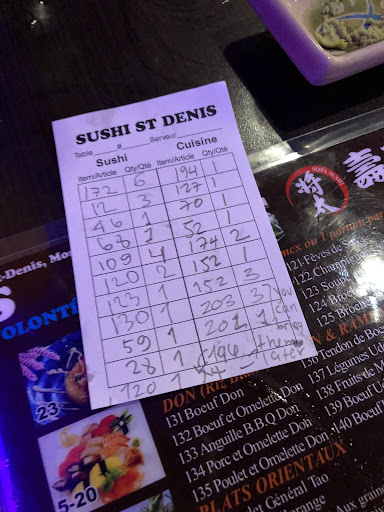 SUSHI ST DENIS
Table a Serveur
Sushi Cuisine
Item/Article Qty/Qté Item/Article Qty/Qté
172 6 194 1
12 3 127 1
46 1 70 1
68 1 52 1
109 4 174 2
120 2 152 1
123 1 152 3
130 1 203 3
59 1 201 1
28 1
120 1
you can bring them later
-Denis, Mo
S
OLONTÉ
23
5-20
将太
嘉
ou 1 poirrain
121 Fèves de
122 Champi
123 Soup
124 Broc
125 Broch
& RAM
136 Tendon de Boe
137 Légumes Ud
138 Fruits de M
139 Boeuf U
140 Boeuf
DON
131 Boeuf Don
132 Boeuf et Omelette Don
133 Anguille B.B.Q Don
134 Porc et Omelette Don
135 Poulet et Omelette Don
PLATS ORIENTAUX
let Général Tao
orange
Aux